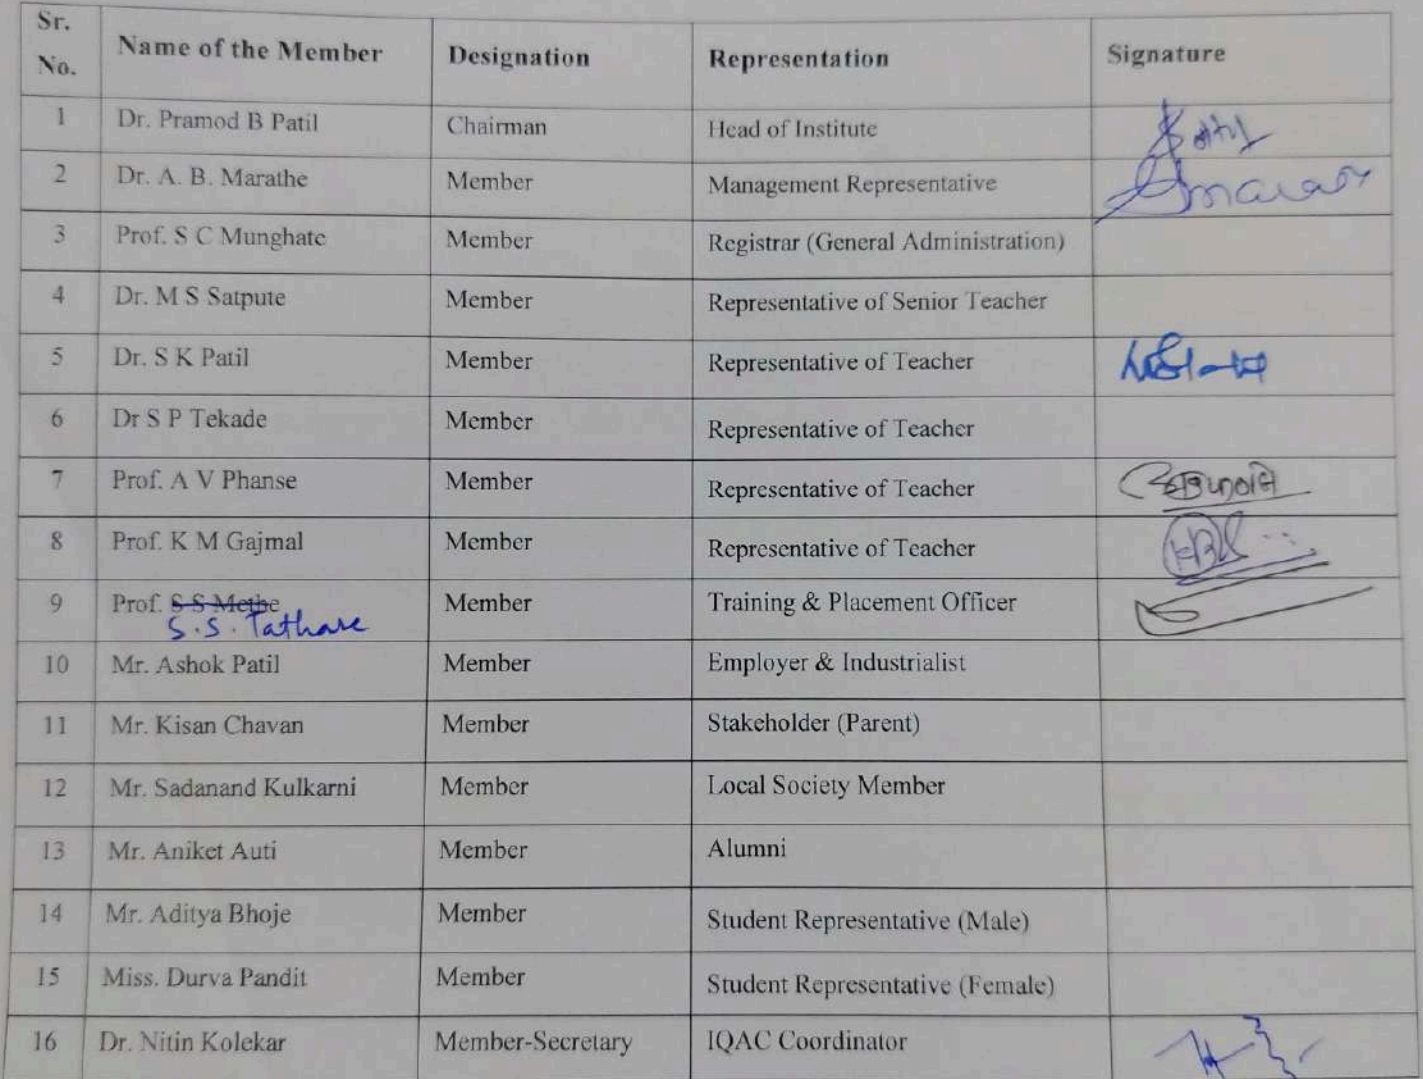 Sr. No. Name of the Member Designation Representation Signature
1 Dr. Pramod B Patil Chairman Head of Institute
2 Dr. A. B. Marathe Member Management Representative
3 Prof. S C Munghate Member Registrar (General Administration)
4 Dr. M S Satpute Member Representative of Senior Teacher
5 Dr. S K Patil Member Representative of Teacher
6 Dr S P Tekade Member Representative of Teacher
7 Prof. A V Phanse Member Representative of Teacher
8 Prof. K M Gajmal Member Representative of Teacher
9 Prof. S S Methe Member Training & Placement Officer
S.S. Tathare
10 Mr. Ashok Patil Member Employer & Industrialist
11 Mr. Kisan Chavan Member Stakeholder (Parent)
12 Mr. Sadanand Kulkarni Member Local Society Member
13 Mr. Aniket Auti Member Alumni
14 Mr. Aditya Bhoje Member Student Representative (Male)
15 Miss. Durva Pandit Member Student Representative (Female)
16 Dr. Nitin Kolekar Member-Secretary IQAC Coordinator